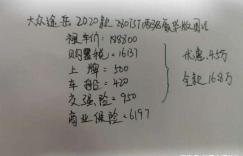 大众途岳2020款280TSI两驱豪华版国VI
裸车价:188800
购置税=16137
上牌=500
车船=420
交强险=950
商业保险=6197
优惠4.5万
全款16.8万